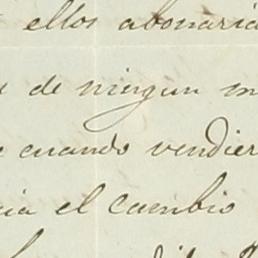 ellos abonaria
de ningun m
cuando vendier
cia el cambio